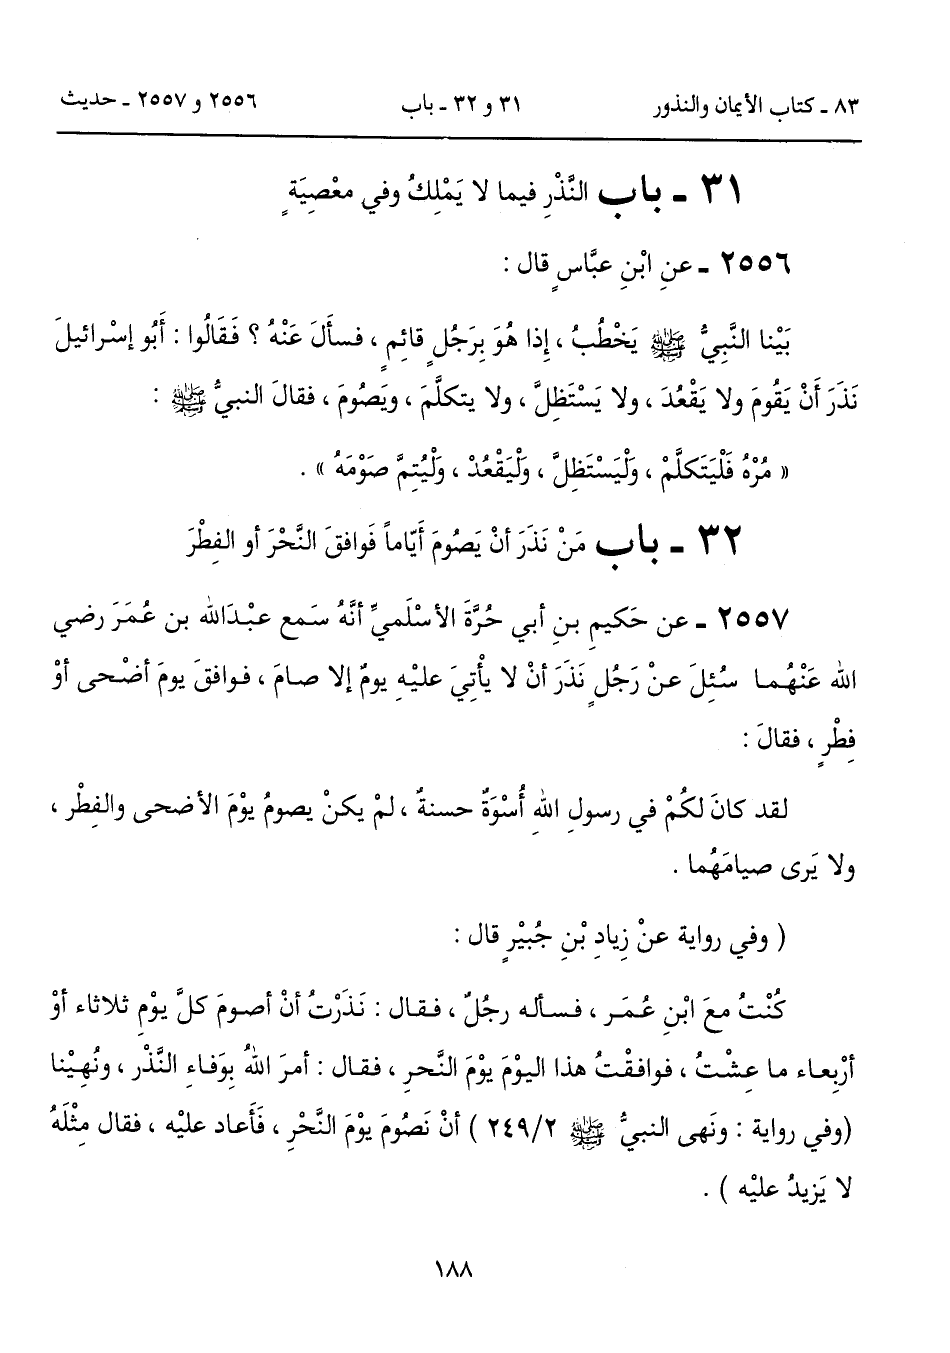 ٨٣ ـ كتاب الأيمان والنذور ٣١ و ٣٢ ـ باب ٢٥٥٦ و ٢٥٥٧ ـ حديث
٣١ ـ باب النَّذْرِ فيما لا يَمْلِكُ وفي معْصِيَةٍ
٢٥٥٦ ـ عنِ ابْنِ عبَّاسٍ قال :
بَيْنا النَّبِيُّ ﷺ يَخْطُبُ ، إذا هُوَ بِرَجُلٍ قائمٍ ، فسأَلَ عَنْهُ ؟ فَقَالُوا : أَبُو إسْرائيلَ
نَذَرَ أَنْ يَقُومَ ولا يَقْعُدَ ، ولا يَسْتَظِلَّ ، ولا يتكلَّمَ ، ويَصُومَ ، فقالَ النبيُّ ﷺ :
« مُرْهُ فَلْيَتَكلَّمْ ، وَلْيَسْتَظِلَّ ، وَلْيَقْعُدْ ، وَلْيُتِمَّ صَوْمَهُ » .
٣٢ ـ باب مَنْ نَذَرَ أنْ يَصُومَ أَيّاماً فَوافقَ النَّحْرَ أو الفِطْرَ
٢٥٥٧ ـ عن حَكيمِ بنِ أبي حُرَّةَ الأسْلَميِّ أنَّهُ سَمع عبْدَالله بن عُمَرَ رضي
الله عَنْهُما سُئِلَ عنْ رَجُلٍ نَذَرَ أنْ لا يأْتِيَ عليْهِ يومٌ إلا صامَ ، فوافقَ يومَ أضْحى أوْ
فِطْرٍ ، فقالَ :
لقد كانَ لكُمْ في رسولِ اللهِ أُسْوَةٌ حسنةٌ ، لمْ يكنْ يصومُ يوْمَ الأضحى والفِطْر ،
ولا يَرى صيامَهُما .
( وفي رواية عنْ زِيادِ بْنِ جُبيْرٍ قال :
كُنْتُ معَ ابْنِ عُمَر ، فسأله رجُلٌ ، فقال : نَذَرْتُ أنْ أصومَ كلَّ يوْمِ ثلاثاء أوْ
أرْبِعاء ما عِشْتُ ، فوافقْتُ هذا اليوْمَ يوْمَ النَّحرِ ، فقال : أمرَ اللهُ بوَفاءِ النَّذْر ، ونُهِيْنا
(وفي رواية : ونَهى النبيُّ ﷺ ٢٤٩/٢ ) أنْ نَصُومَ يوْمَ النَّحْرِ ، فَأَعاد عليْه ، فقال مِثْلَهُ
لا يَزيدُ عليْه ) .
١٨٨